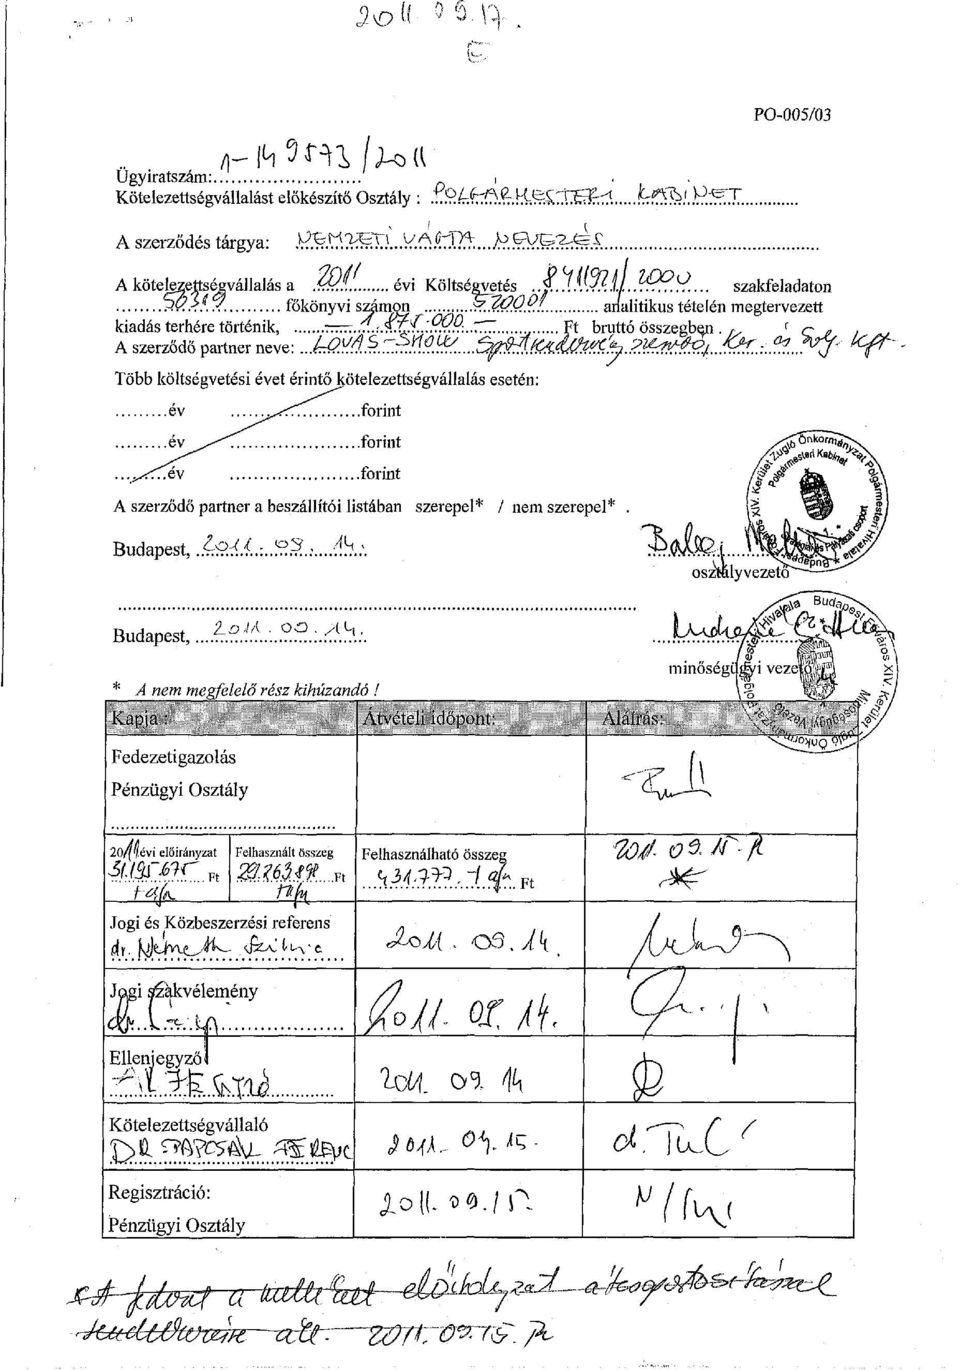 2011 09.17.
E
PO-005/03
Ügyiratszám:........................ 1-149573/2011
Kötelezettségvállalást előkészítő Osztály : POLGÁRMESTERI KABINET
A szerződés tárgya: NEMZETI VÁGTA NEVEZÉS
A kötelezettségvállalás a 2011 évi Költségvetés 8411921/2000 szakfeladaton
56319 főkönyvi számon 572001 analitikus tételén megtervezett
kiadás terhére történik, — 1.875.000.— Ft bruttó összegben.
A szerződő partner neve: LOVAS-SHOW Sportrendezvény szervező, Ker. és Szolg. Kft.
Több költségvetési évet érintő kötelezettségvállalás esetén:
.........év ......................forint
.........év ......................forint
.........év ......................forint
A szerződő partner a beszállítói listában szerepel* / nem szerepel* .
Budapest, 2011. 09. 14.
osztályvezető
Budapest, 2011. 09. 14.
minőségügyi vezető
* A nem megfelelő rész kihúzandó !
Kapja : Átvételi időpont: Aláírás:
Fedezetigazolás
Pénzügyi Osztály
2011 évi előirányzat Felhasznált összeg Felhasználható összeg 2011. 09. 15.
31.195.675 Ft Ft Ft
Jogi és Közbeszerzési referens
dr. Németh Szilvia 2011. 09. 14.
Jogi szakvélemény
dr. 2011. 09. 14.
Ellenjegyző
ALJEGYZŐ 2011. 09. 14
Kötelezettségvállaló
DR PAPCSÁK FERENC 2011. 09. 15.
Regisztráció:
Pénzügyi Osztály 2011. 09. 15.
előirányzat átcsoportosítással
rendelkezésre áll. 2011. 09. 15.